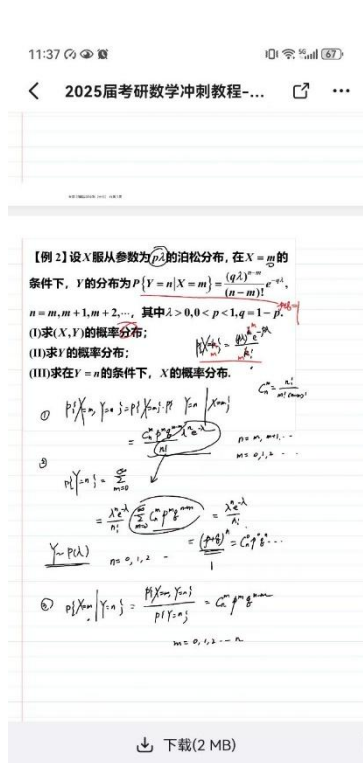 11:37
67
2025届考研数学冲刺教程-...
【例 2】设X服从参数为pλ的泊松分布，在X = m的
条件下，Y的分布为P{Y = n|X = m} = (qλ)^{n-m}/(n-m)! e^{-qλ},
p+q=1
n = m, m+1, m+2, ⋯, 其中λ > 0, 0 < p < 1, q = 1 - p.
(I)求(X,Y)的概率分布；
(II)求Y的概率分布；
(III)求在Y = n的条件下，X的概率分布.
C_n^m = n!/m!(n-m)!
① P{X=m, Y=n} = P{X=m}·P{Y=n|X=m}
= C_n^m p^m q^{n-m}/n! λ^n e^{-λ}
n = m, m+1, ...
m = 0, 1, 2 ...
② P{Y=n} = Σ_{m=0}^∞
= λ^n e^{-λ}/n! Σ C_n^m p^m q^{n-m} = λ^n e^{-λ}/n!
Y~P(λ) n = 0, 1, 2 ...
= (p+q)^n
1
③ P{X=m|Y=n} = P{X=m, Y=n}/P{Y=n} = C_n^m p^m q^{n-m}
m = 0, 1, 2 ... n
下载(2 MB)